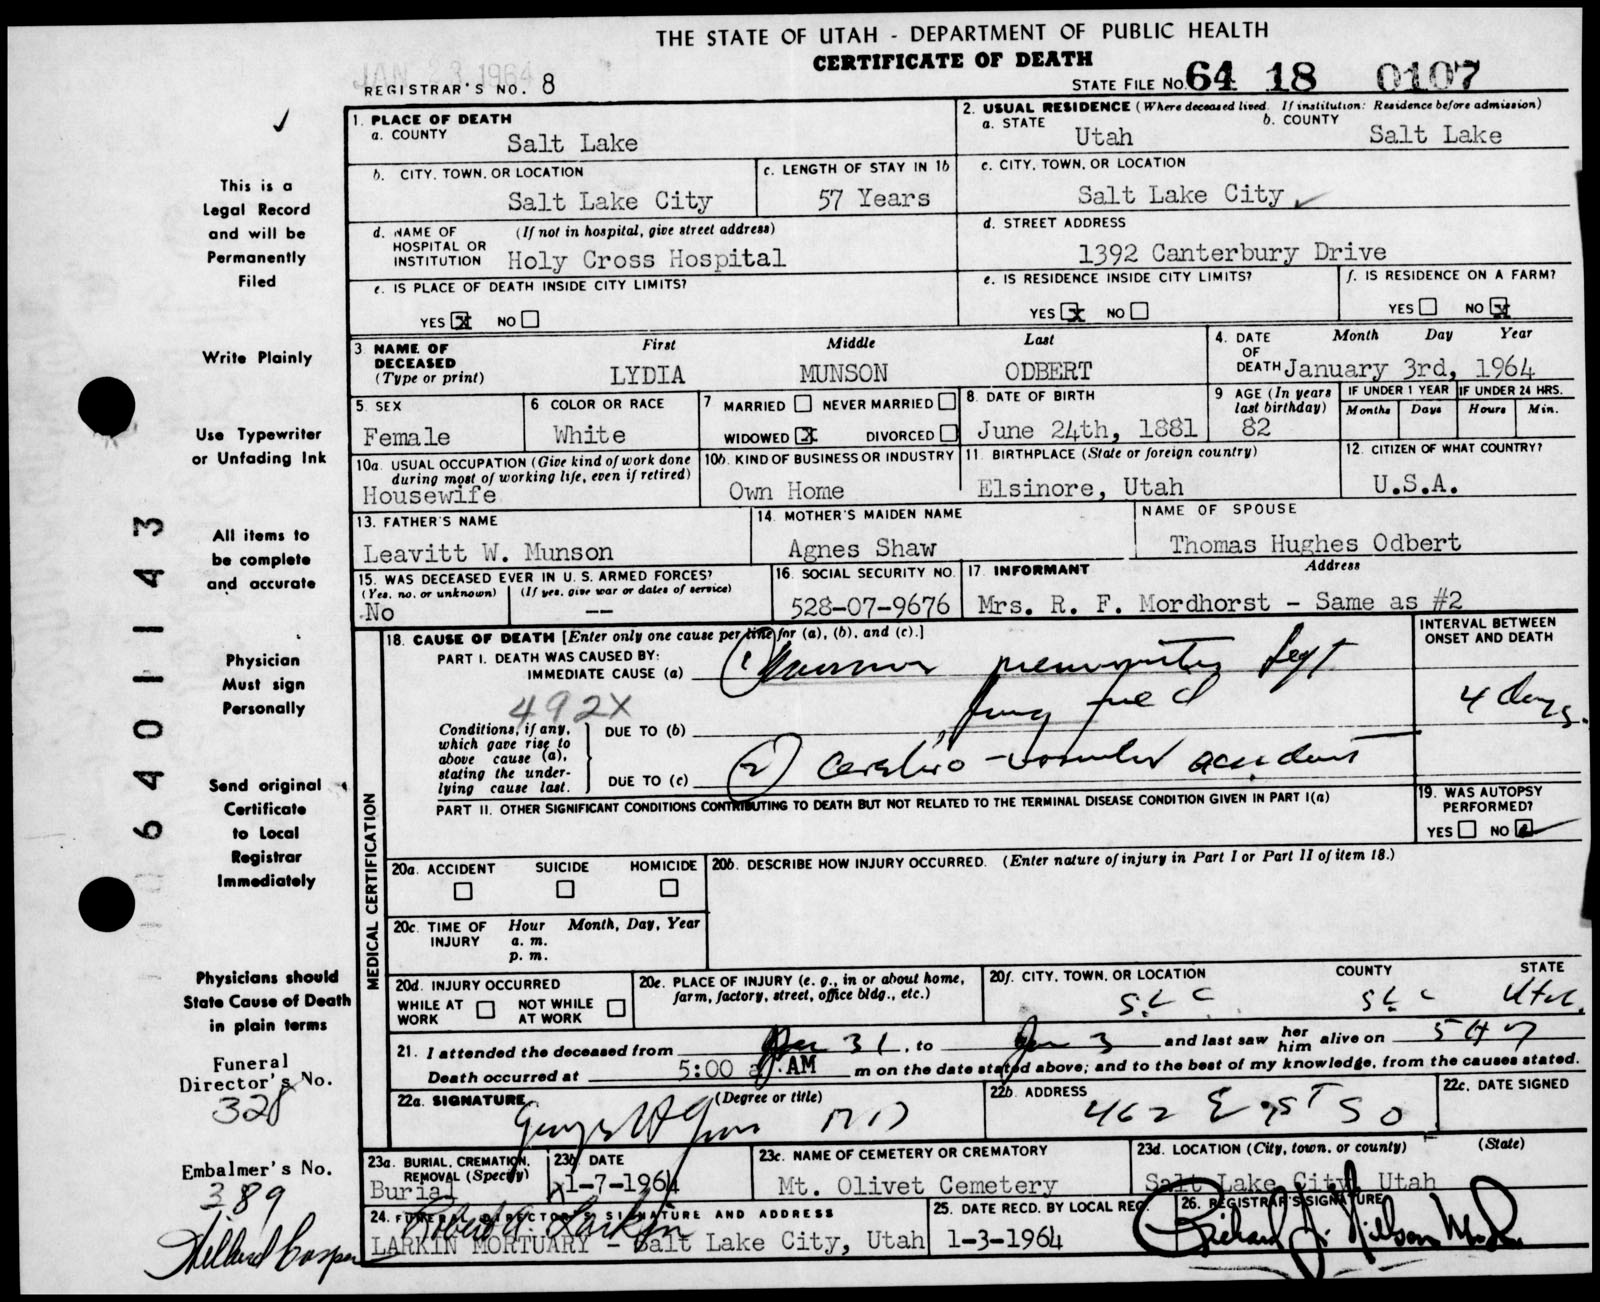 THE STATE OF UTAH - DEPARTMENT OF PUBLIC HEALTH
CERTIFICATE OF DEATH
JAN 23 1964
REGISTRAR'S NO. 8
STATE FILE NO. 64 18 0107
1. PLACE OF DEATH
a. COUNTY
Salt Lake
2. USUAL RESIDENCE (Where deceased lived. If institution: Residence before admission)
a. STATE
Utah
b. COUNTY
Salt Lake
b. CITY, TOWN, OR LOCATION
Salt Lake City
c. LENGTH OF STAY IN 1b
57 Years
c. CITY, TOWN, OR LOCATION
Salt Lake City
d. NAME OF HOSPITAL OR INSTITUTION
(If not in hospital, give street address)
Holy Cross Hospital
d. STREET ADDRESS
1392 Canterbury Drive
e. IS PLACE OF DEATH INSIDE CITY LIMITS?
YES X NO
e. IS RESIDENCE INSIDE CITY LIMITS?
YES X NO
f. IS RESIDENCE ON A FARM?
YES NO X
3. NAME OF DECEASED (Type or print)
First Middle Last
LYDIA MUNSON ODBERT
4. DATE OF DEATH
Month Day Year
January 3rd, 1964
5. SEX
Female
6. COLOR OR RACE
White
7 MARRIED NEVER MARRIED
WIDOWED X DIVORCED
8. DATE OF BIRTH
June 24th, 1881
9 AGE (In years last birthday)
82
IF UNDER 1 YEAR
Months Days
IF UNDER 24 HRS.
Hours Min.
10a. USUAL OCCUPATION (Give kind of work done during most of working life, even if retired)
Housewife
10b. KIND OF BUSINESS OR INDUSTRY
Own Home
11. BIRTHPLACE (State or foreign country)
Elsinore, Utah
12. CITIZEN OF WHAT COUNTRY?
U.S.A.
13. FATHER'S NAME
Leavitt W. Munson
14. MOTHER'S MAIDEN NAME
Agnes Shaw
NAME OF SPOUSE
Thomas Hughes Odbert
15. WAS DECEASED EVER IN U.S. ARMED FORCES?
(Yes, no. or unknown) (If yes, give war or dates of service)
No --
16. SOCIAL SECURITY NO.
528-07-9676
17. INFORMANT Address
Mrs. R. F. Mordhorst - Same as #2
MEDICAL CERTIFICATION
18. CAUSE OF DEATH [Enter only one cause per line for (a), (b), and (c).]
PART I. DEATH WAS CAUSED BY:
IMMEDIATE CAUSE (a)
492X
Conditions, if any, which gave rise to above cause (a), stating the underlying cause last.
DUE TO (b)
DUE TO (c) (2) cerebro-vascular accident
INTERVAL BETWEEN ONSET AND DEATH
4 days.
PART II. OTHER SIGNIFICANT CONDITIONS CONTRIBUTING TO DEATH BUT NOT RELATED TO THE TERMINAL DISEASE CONDITION GIVEN IN PART I(a)
19. WAS AUTOPSY PERFORMED?
YES NO
20a. ACCIDENT SUICIDE HOMICIDE
20b. DESCRIBE HOW INJURY OCCURRED. (Enter nature of injury in Part I or Part II of item 18.)
20c. TIME OF INJURY
Hour Month, Day, Year
a. m.
p. m.
20d. INJURY OCCURRED
WHILE AT WORK NOT WHILE AT WORK
20e. PLACE OF INJURY (e. g., in or about home, farm, factory, street, office bldg., etc.)
20f. CITY, TOWN, OR LOCATION COUNTY STATE
SLC SLC Utah
21. I attended the deceased from Dec 31, to Jan 3 and last saw her him alive on
Death occurred at 5:00 a. AM m on the date stated above; and to the best of my knowledge, from the causes stated.
22a. SIGNATURE (Degree or title)
MD
22b. ADDRESS
462 East So
22c. DATE SIGNED
23a. BURIAL, CREMATION, REMOVAL (Specify)
Burial
23b. DATE
1-7-1964
23c. NAME OF CEMETERY OR CREMATORY
Mt. Olivet Cemetery
23d. LOCATION (City, town, or county) (State)
Salt Lake City, Utah
24. FUNERAL DIRECTOR'S SIGNATURE AND ADDRESS
Robert A. Larkin
LARKIN MORTUARY - Salt Lake City, Utah
25. DATE RECD. BY LOCAL REG.
1-3-1964
26. REGISTRAR'S SIGNATURE
This is a
Legal Record
and will be
Permanently
Filed
Write Plainly
Use Typewriter
or Unfading Ink
All items to
be complete
and accurate
Physician
Must sign
Personally
Send original
Certificate
to Local
Registrar
Immediately
Physicians should
State Cause of Death
in plain terms
Funeral
Director's No.
328
Embalmer's No.
389
6401143